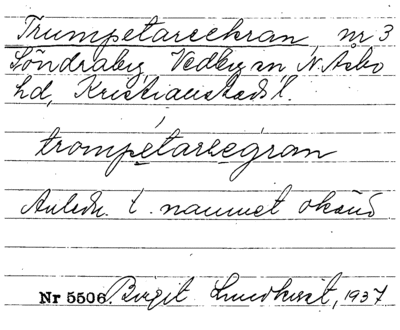 Trumpetareekran, nr 3
Söndraby, Vedby sn N. Åsbo
hd, Kristianstads l.
trompetaregran
Anledn. t. namnet okänd
Nr 5506 Birgit Lundkvist, 1937